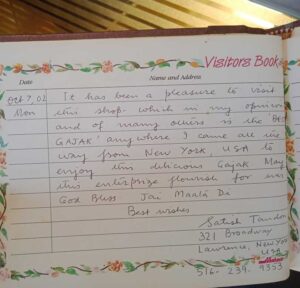 Visitors Book
Date Name and Address
Oct 7, 02 It has been a pleasure to visit
Mon this shop which in my opinion
and of many others is the 'BEST
GAJAK' anywhere I came all the
way from NEW YORK, USA to
enjoy this delicious Gajak May
this enterprize flourish for ever
God Bless Jai Maata Di
Best wishes
Satish Tandon
321 Broadway
Lawrence, New York
USA
516-239-9553